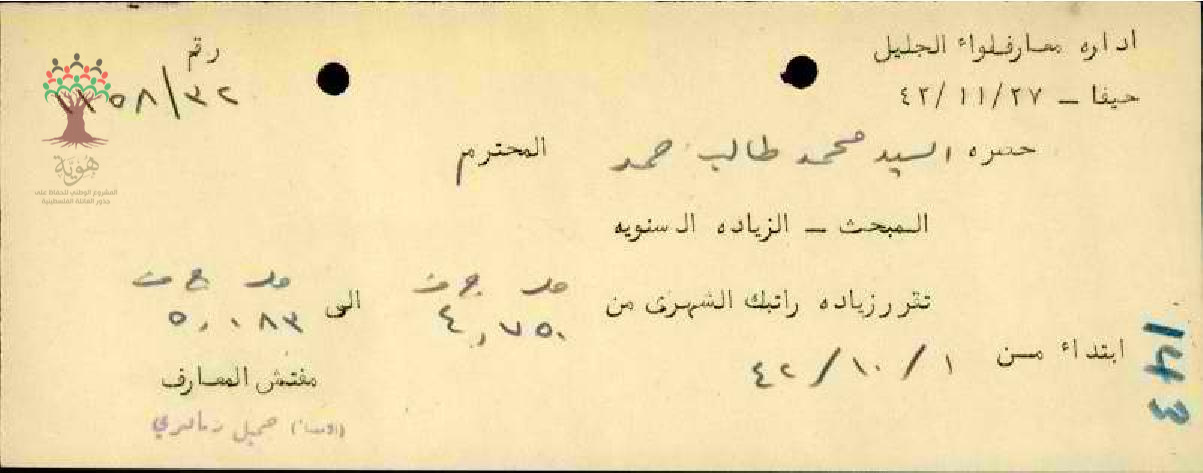 اداره معارف لواء الجليل
رقم
حيفا – ٤٢/١١/٢٧
١١٥٨/٣٢
حضره السيد محمد طالب حمد المحترم
المبحث – الزياده السنويه
مل ج ف
مل ج ف
تقرر زياده راتبك الشهرى من ٤,٧٥٠ الى ٥,٠٨٣
ابتداء من ٤٢/١٠/١
مفتش المعارف
(الامضاء) جميل
143
هُويّة
المشروع الوطني للحفاظ على
جذور العائلة الفلسطينية